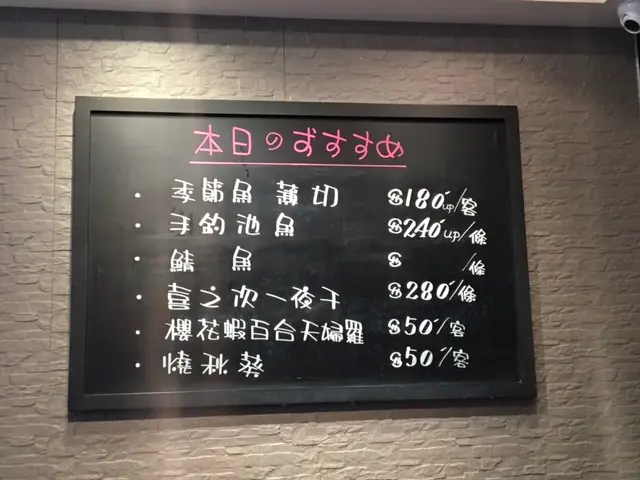 本日のおすすめ
・季節魚 薄切 $180up/客
・手釣池魚 $240up/條
・鯖 魚 $ /條
・喜之次一夜干 $280/條
・櫻花蝦百合天婦羅 $50/客
・燒秋葵 $50/客